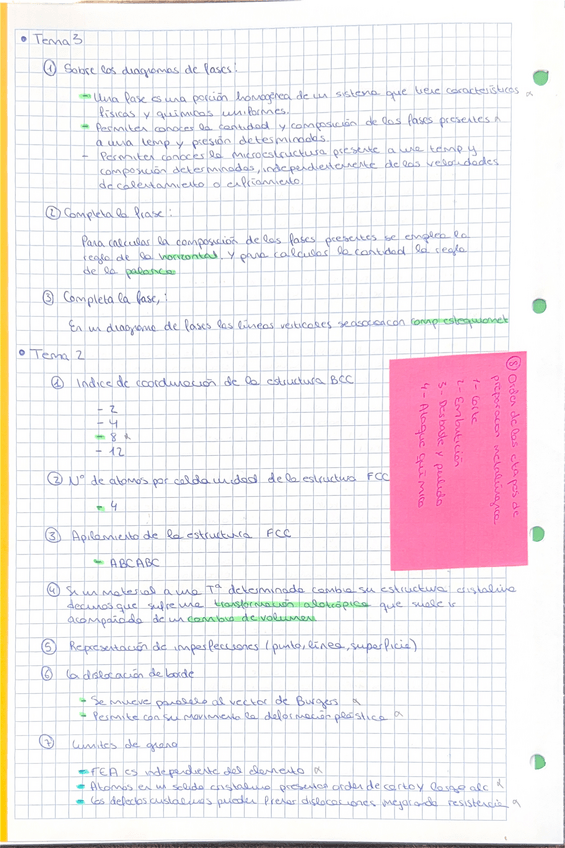 • Tema 3
① Sobre los diagramas de fases:
- Una fase es una porción homogénea de un sistema que tiene características
físicas y químicas uniformes.
- Permiten conocer la cantidad y composición de las fases presentes
a una temp y presión determinadas.
- Permiten conocer la microestructura presente a una temp y
composición determinadas, independientemente de las velocidades
de calentamiento o enfriamiento.
② Completa la frase:
Para calcular la composición de las fases presentes se emplea la
regla de la horizontal y para calcular la cantidad la regla
de la palanca
③ Completa la fase,:
En un diagrama de fases las líneas verticales se asocian con comp estequiomet
• Tema 2
① Indice de coordinación de la estructura BCC
- 2
- 4
- 8
- 12
② Nº de atomos por celda unidad de la estructura FCC
- 4
③ Apilamiento de la estructura FCC
- ABCABC
④ Si un material a una Tª determinada cambia su estructura cristalina
decimos que sufre una transformación alotrópica que suele
acompañada de un cambio de volumen
⑤ Representación de imperfecciones (punto, linea, superficie)
⑥ La dislocación de borde
- Se mueve paralelo al vector de Burgers
- Permite con su movimiento la deformación plástica
⑦ Limites de grano
- FEA es independiente del elemento
- Atomos en un solido cristalino presentan orden de corto y largo alc
- Los defectos cristalinos pueden frenar dislocaciones mejorando resistencia
⑧ Orden de las etapas de
preparación metalográfica
1- Corte
2- Embutición
3- Desbaste y pulido
4- Ataque químico